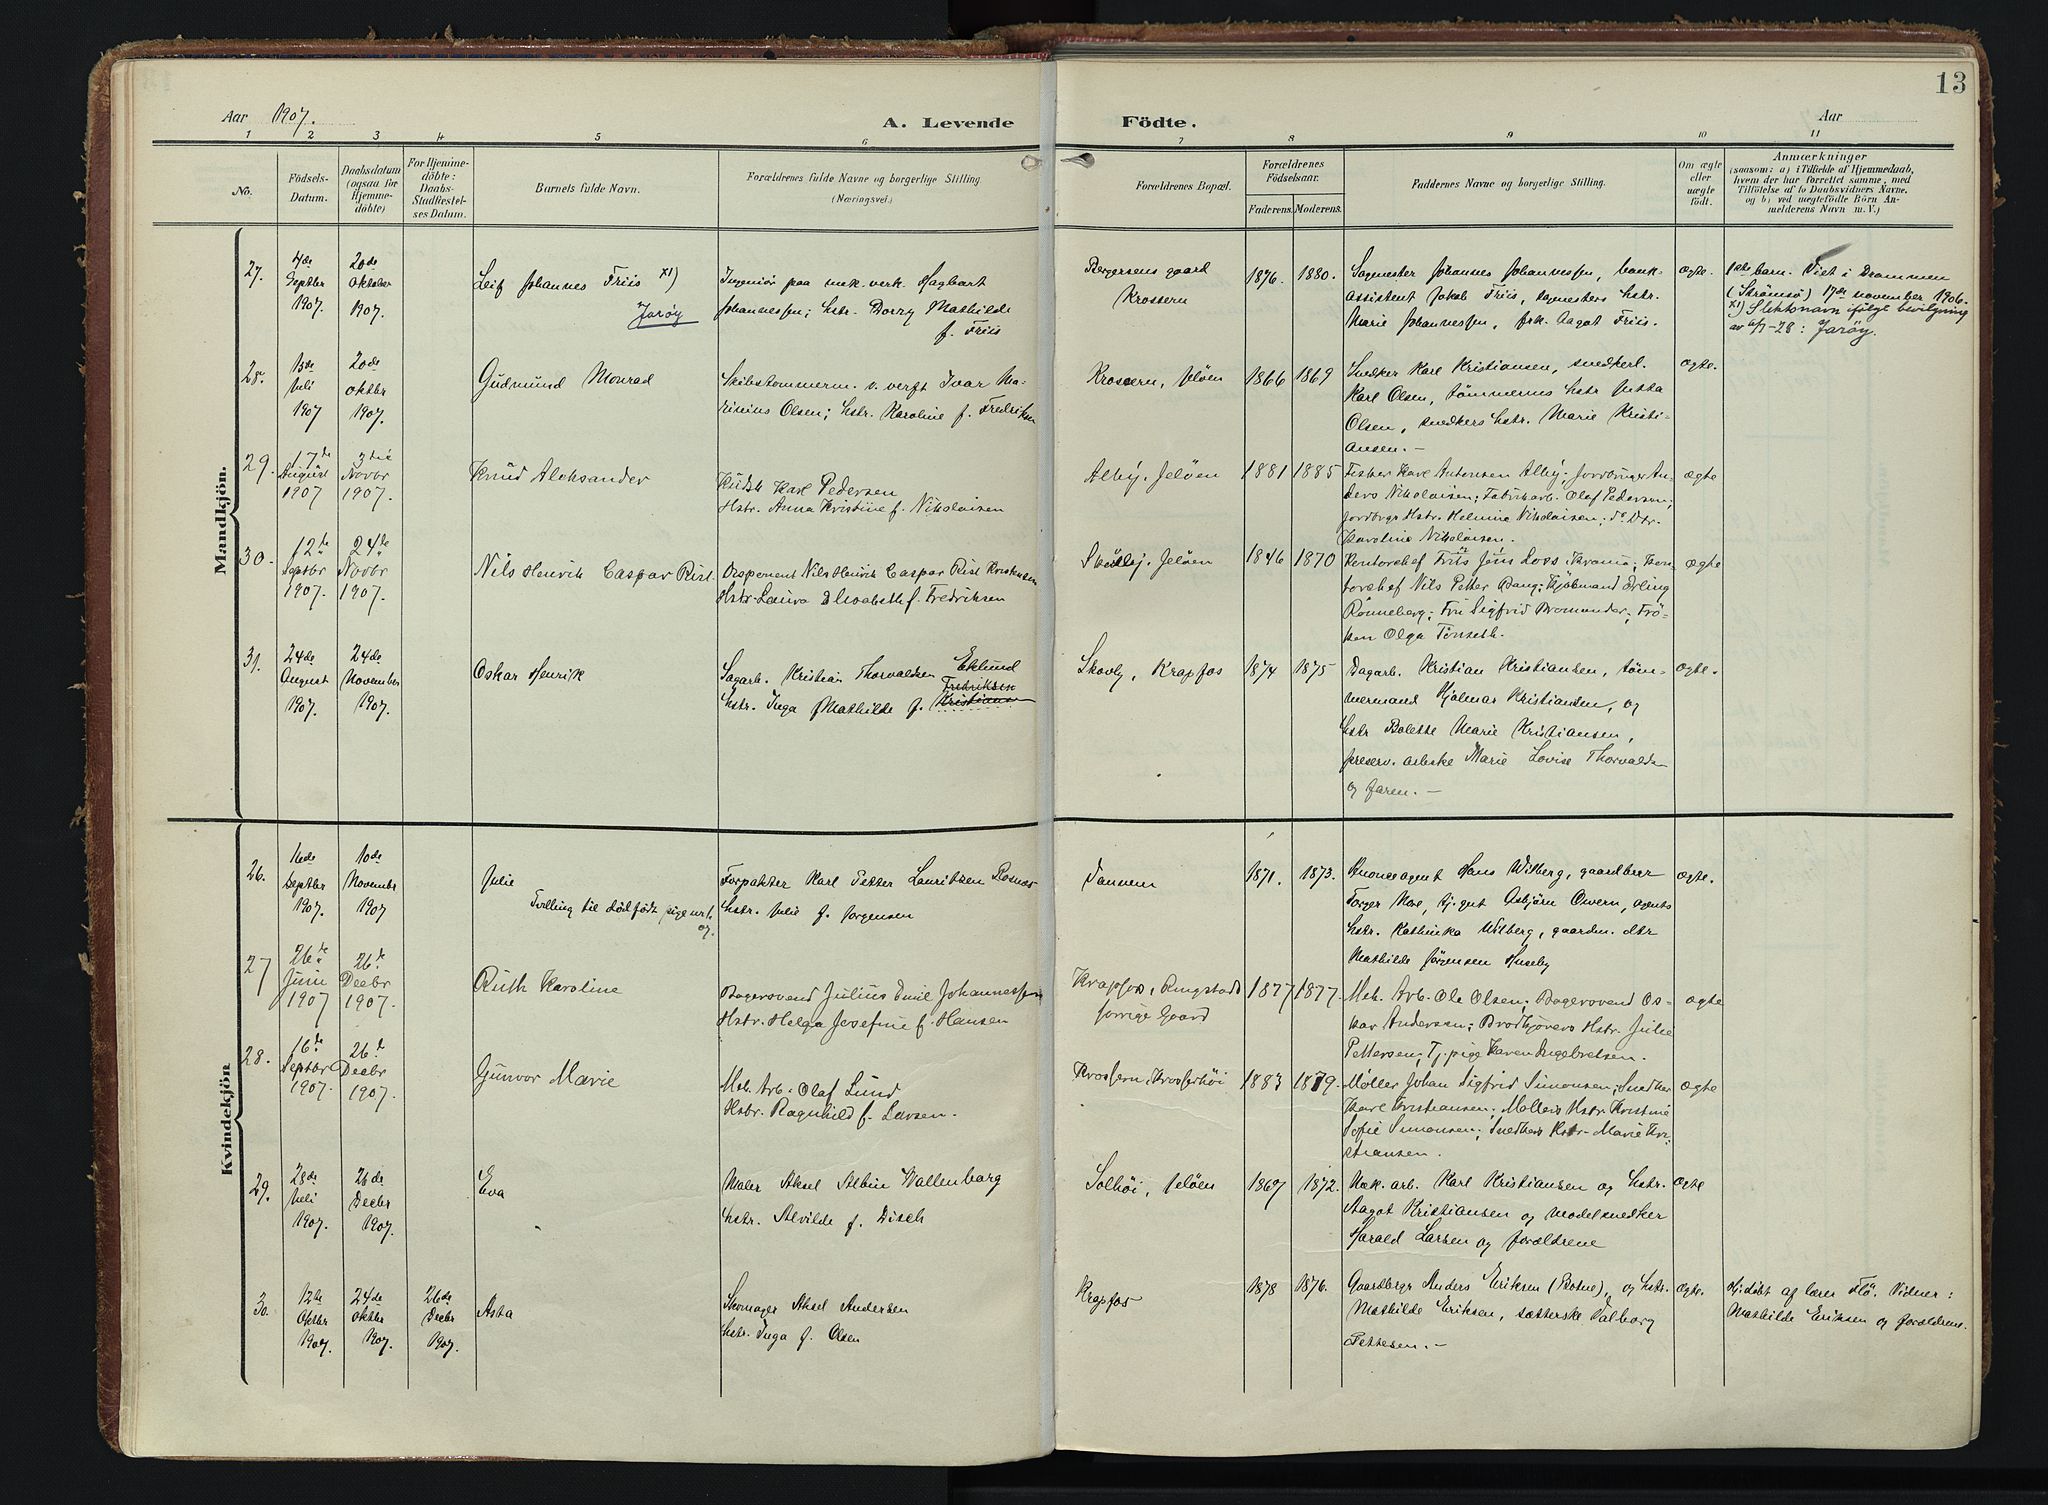 13
Aar 1907.
A. Levende Födte.
Aar
1 2 3 4 5 6 7 8 9 10 11
No.
Födsels-
Datum.
Daabsdatum
(ogsaa for
Hjemme-
döbte)
For Hjemme-
döbte:
Daabs-
Stadfæstel-
ses Datum.
Barnets fulde Navn.
Forældrenes fulde Navne og borgerlige Stilling
(Næringsvei.)
Forældrenes Bopæl.
Forældrenes
Födselsaar.
Faderens. Moderens.
Faddernes Navne og borgerlige Stilling.
Om ægte
eller
uægte
födt.
Anmærkninger
(saasom: a) i Tilfælde af Hjemmedaab,
hvem der har forrettet samme, med
Tilföielse af to Daabsvidners Navne.
og b) ved uægtefödte Börn An-
melderens Navn m. V.)
Mandkjön.
27.
4de
Septbr
1907.
20de
oktober
1907.
Leif Johannes Friis x1)
Jarøy
Ingeniør paa mek. verk. Hagbart
Johannessen; hstr. Dorry Mathilde
f. Friis
Bergersens gaard
Krossern
1876. 1880.
Sagmester Johannes Johannessen, bank-
assistent Jakob Friis, sagmesters hstr.
Marie Johannessen, frk. Aagot Friis.
ægte.
1ste barn. Viet i Drammen
(Strømsø) 17de november 1906.
x1) Slektsnavn ifölge bevilgning
av 6/7-28: Jarøy.
28.
15de
juli
1907
20de
oktbr
1907.
Gudmund Monrad
Skibstømmerm. v. verft Ivar Ma-
rinius Olsen; hstr. Karoline f. Fredriksen
Krossern, Jeløen
1866 1869
Snedker Karl Kristiansen, snedkerl.
Karl Olsen, tömmerms hstr Jutta
Olsen, snedkers hstr. Marie Kristi-
ansen. -
ægte.
29.
17de
August
1907
3die
Novbr
1907.
Knud Aleksander
Kudsk Karl Pedersen
Hstr. Anna Kristine f. Nikolaisen
Alby. Jeløen
1881 1885
Fisker Karl Antonsen Alby; Jordbruger An-
ders Nikolaisen; Fabrikarb. Olaf Pedersen;
Jordbrgr Hstr. Helmine Nikolaisen; do Dtr.
Karoline Nikolaisen.
ægte
30.
12te
Septbr
1907.
24de
Novbr
1907.
Nils Henrik Caspar Rist.
Disponent Nils Henrik Caspar Rist Kristensen
Hstr. Laura Elisabeth f. Fredriksen
Jeløen
1846 1870
Kontorchef Friis Jens Loss Krania; Kon-
torchef Nils Petter Bang; Kjöbmand Erling
Rönneberg; Fru Sigfrid Bromander; Frö-
ken Olga Tønseth.
ægte
31.
24de
August
1907.
24de
November
1907.
Oskar Henrik
Sagarb. Kristian Thorvaldsen Eklund
Fredriksen
hstr. Inga Mathilde f. Kristiansen
Skovly, Krapfos
1874 1875
Dagarb. Kristian Kristiansen, töm-
mermand Hjalmar Kristiansen, og
hstr Bolette Marie Kristiansen,
preserv. arbske Marie Lovise Thorvalds-
og faren. -
ægte.
Kvindekjön
26.
16de
Septbr
1907.
10de
Novembr
1907
Julie
Tvilling til dödfödt pige nr 1.
07.
Forpakter Karl Petter Lauritzen Rosnæs
hstr. Julie f. Jørgensen
1871. 1873.
Annonceagent Hans Wilberg, gaardbrgr
Torger Moe, tj. gut Asbjørn Owern, agents
hstr. Kathinka Wilberg, gaardm. dtr
Mathilde Jørgensen Huseby
ægte.
27
26de
Juni
1907
26de
Decbr
1907.
Ruth Karoline
Bagersvend Julius Emil Johannessen
Hstr. Helga Josefine f. Hansen
Krapfos, Ringstads
forrige Gaard
1877 1877.
Mek. Arb. Ole Olsen; Bagersvend Os-
kar Andersen; Brödkjörers Hstr. Julie
Pettersen; Tj. pige Karen Ingebretsen.
ægte
28.
16de
Septbr
1907.
26de
Decbr
1907.
Gunvor Marie
Mek. Arb. Olaf Lund
Hstr. Ragnhild f. Larsen.
Krossern, Krosserhöi
1883 1879.
Möller Johan Sigfrid Simonsen; Snedker
Karl Kristiansen; Möllers Hstr. Kristine
Sofie Simonsen; Snedkers Hstr. Marie Kri-
stiansen.
ægte
29.
28de
Juli
1907.
26de
Decbr
1907.
Eva
Maler Aksel Albin Wallenborg
hstr. Alvilde f. Disch
Solhöi, Jeløen
1869 1872.
Mek. arb. Karl Kristiansen og hstr.
Aagot Kristiansen og modelsnedker
Harald Larsen og forældrene
ægte
30.
12te
Oktbr
1907.
24de
oktbr
1907.
26de
Decbr
1907.
Asta
Skomager Aksel Andersen
hstr. Inga f. Olsen
Krapfos
1878 1876.
Gaardbrgr Anders Eriksen (Botne), og hstr.
Mathilde Eriksen, sætterske Valborg
Pettesen. -
ægte.
Hjdöbt af lærer Flö. Vidner:
Mathilde Eriksen og forældrene.